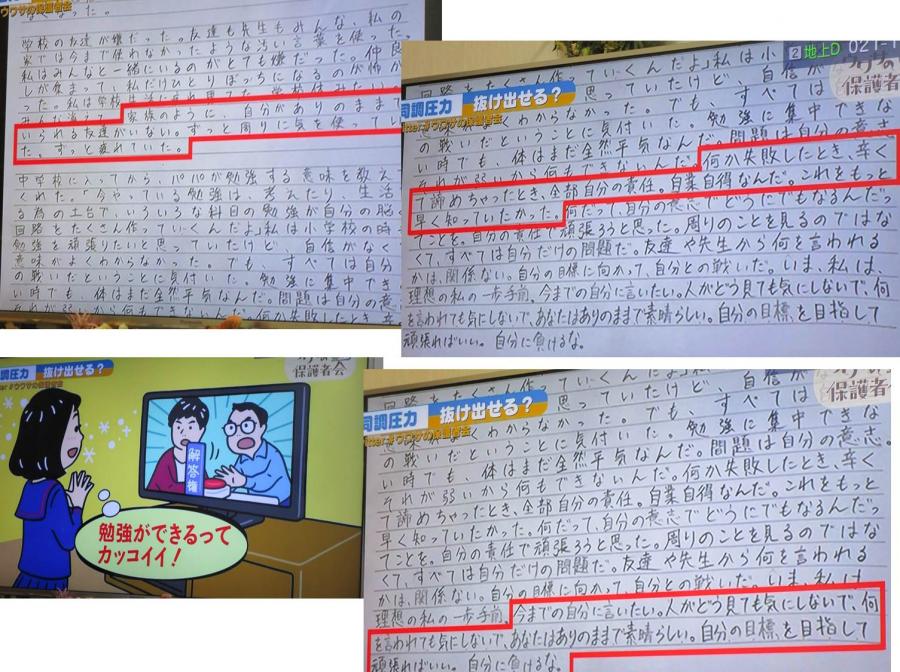 ウワサの保護者会
学校の友達が嫌だった。友達も先生もみんな、私の
家では今まで使わなかったような汚い言葉を使った。
私はみんなと一緒にいるのがとても嫌だった。仲良
しが集まって、私だけひとりぼっちになるのが怖か
った。私は学校
みんが消えて、家族のように、自分がありのままで
いられる友達がいない。ずっと周りに気を使ってい
た。ずっと疲れていた。
中学校に入ってから、パパが勉強する意味を教えて
くれた。「今やっている勉強は、考えたり、生活
る為の土台で、いろいろな科目の勉強が自分の脳の
回路をたくさん作っていくんだよ」私は小学校の時
勉強を頑張りたいと思っていたけど、自信がなく
意味がよくわからなかった。でも、すべては自分
の戦いだということに気付いた。勉強に集中できな
い時でも、体はまだ全然平気なんだ。問題は自分の意
それが弱いから何もできないんだ。何か失敗したとき、辛
2 地上D 021-1
保護者
同調圧力 抜け出せる?
#ウワサの保護者会
回路をたくさん作っていくんだよ」私は小
思っていたけど、自信が
よくわからなかった。でも、すべては
の戦いだということに気付いた。勉強に集中できな
い時でも、体はまだ全然平気なんだ。問題は自分の意志
それが弱いから何もできないんだ。何か失敗したとき、辛く
て諦めちゃったとき、全部自分の責任。自業自得なんだ。これをもっと
早く知っていたかった。何だって、自分の意志でどうにでもなるんだっ
てことを。自分の責任で頑張ろうと思った。周りのことを見るのではな
くて、すべては自分だけの問題だ。友達や先生から何を言われる
かは、関係ない。自分の目標に向かって、自分との戦いだ。いま、私は、
理想の私の一歩手前、今までの自分に言いたい。人がどう見ても気にしないで、何
を言われても気にしないで、あなたはありのままで素晴らしい。自分の目標を目指して
頑張ればいい。自分に負けるな。
同調圧力 抜け出せる?
#ウワサの保護者会
保護者会
解答権
勉強ができるって
カッコイイ!
同調圧力 抜け出せる?
itter #ウワサの保護者会
保護者会
回路をたくさん作っていくんだよ」私は小
思っていたけど、自信が
くわからなかった。でも、すべては
の戦いだということに気付いた。勉強に集中できな
い時でも、体はまだ全然平気なんだ。問題は自分の意志。
それが弱いから何もできないんだ。何か失敗したとき、辛く
て諦めちゃったとき、全部自分の責任。自業自得なんだ。これをもっと
早く知っていたかった。何だって、自分の意志でどうにでもなるんだっ
てことを。自分の責任で頑張ろうと思った。周りのことを見るのではな
くて、すべては自分だけの問題だ。友達や先生から何を言われる
かは、関係ない。自分の目標に向かって、自分との戦いだ。いま、私は
理想の私の一歩手前、今までの自分に言いたい。人がどう見ても気にしないで、何
を言われても気にしないで、あなたはありのままで素晴らしい。自分の目標を目指して
頑張ればいい。自分に負けるな。